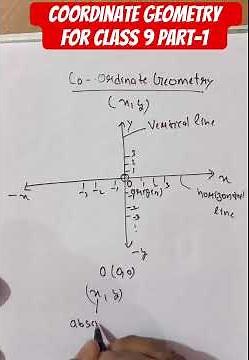 COORDINATE GEOMETRY
FOR CLASS 9 PART-1
Co-ordinate Geometry
(x, y)
Y
Vertical line
3
2
1
-x
-3 -2 -1
0
1 2 3
x
(origin)
horizontal
line
-1
-2
-3
-y
O (0,0)
(x, y)
absc